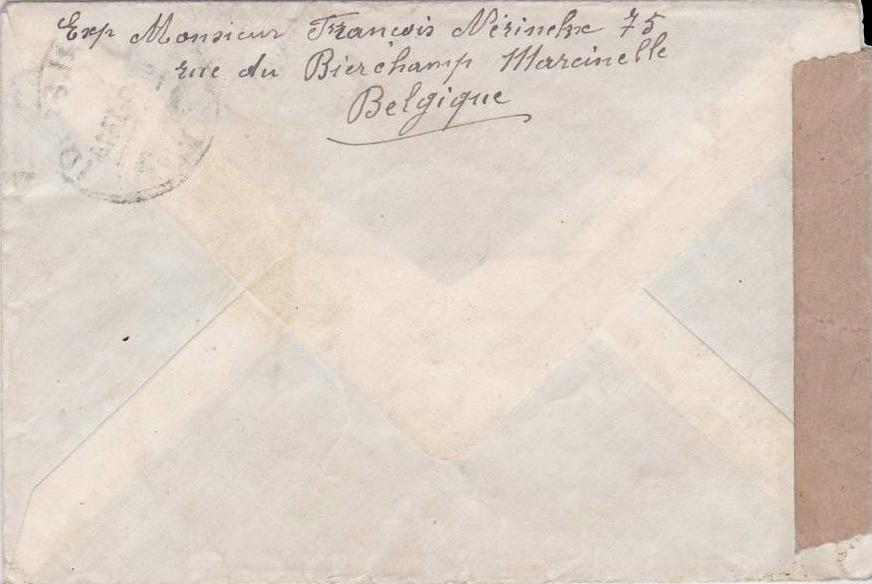 Exp Monsieur François Nérinckx 75
rue du Bierchamp Marcinelle
Belgique